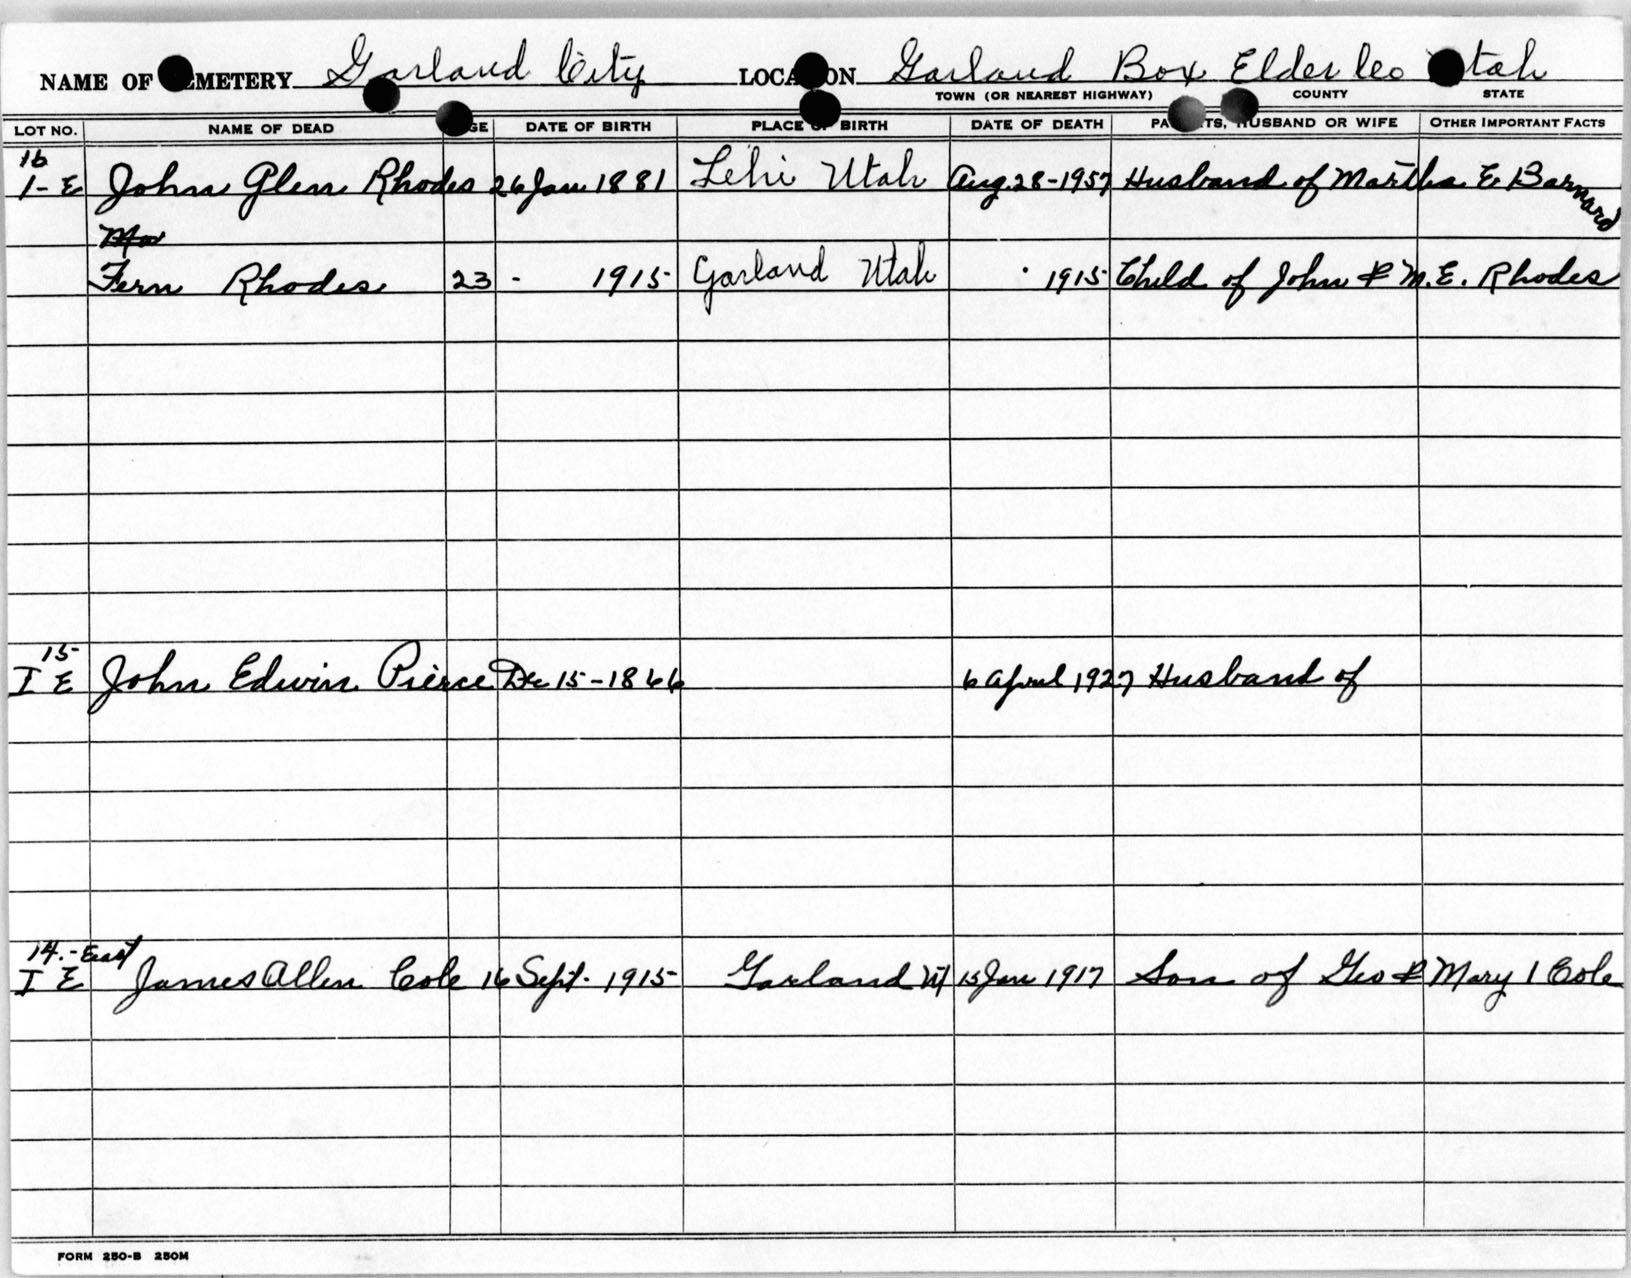 NAME OF CEMETERY Garland City LOCATION Garland Box Elder Co Utah
TOWN (OR NEAREST HIGHWAY) COUNTY STATE
LOT NO. NAME OF DEAD AGE DATE OF BIRTH PLACE OF BIRTH DATE OF DEATH PARENTS, HUSBAND OR WIFE OTHER IMPORTANT FACTS
16
1-E John Glen Rhodes 26 Jan 1881 Lehi Utah Aug. 28-1957 Husband of Martha E Barnard
Fern Rhodes 23 - 1915 Garland Utah 1915 Child of John & M.E. Rhodes
15-
I E John Edwin Pierce Dec 15-1866 6 April 1927 Husband of
14.-East
I E James Allen Cole 16 Sept. 1915 Garland Ut 15 Jan 1917 Son of Geo & Mary I Cole
FORM 250-B 250M